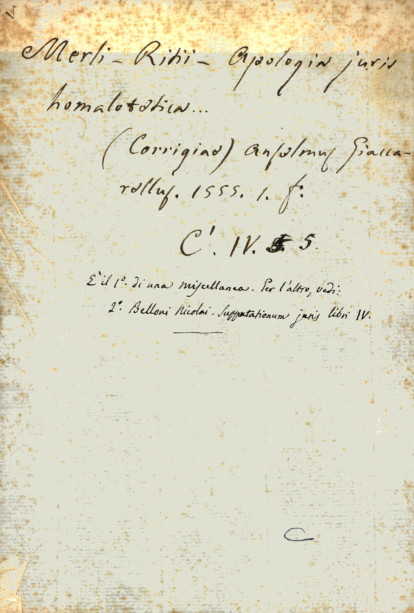 Merli - Ritii - Apologia juris
homalototica...
(Corrigiae) Anselmus Giacca-
rellus. 1555. 1. f.
C'. IV. 5.
È il 1º. di una miscellanea. Per l'altro, vedi:
2º. Belloni Nicolai - Supputationum juris libri IV.
C